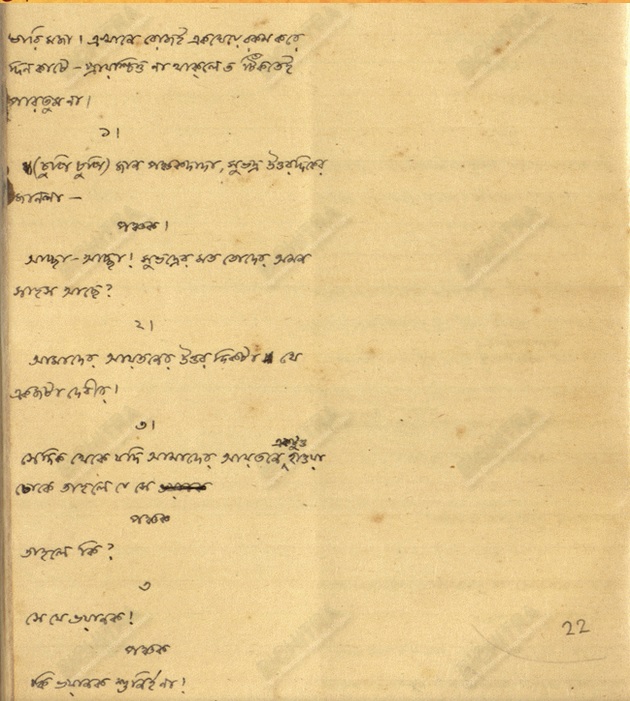 ভারি মজা। এখানে রোজই একঘেয়ে রকম করে
দিন কাটে – প্রায়শ্চিত্ত না থাকলে ত টিঁকতেই
পারতুম না।
১।
(চুপি চুপি) জান পঞ্চকদাদা, সুভদ্র উত্তরদিকের
জানলা –
পঞ্চক।
আচ্ছা – আচ্ছা! সুভদ্রের মত তোদের অমন
সাহস আছে?
২।
আমাদের আয়তনের উত্তর দিকটা যে
একজটা দেবীর।
৩।
সেদিক থেকে যদি আমাদের আয়তনে একটুও হাওয়া
ঢোকে তাহলে যে সে
পঞ্চক
তাহলে কি?
৩
সে যে ভয়ানক!
পঞ্চক
কি ভয়ানক শুনিইনা!
22